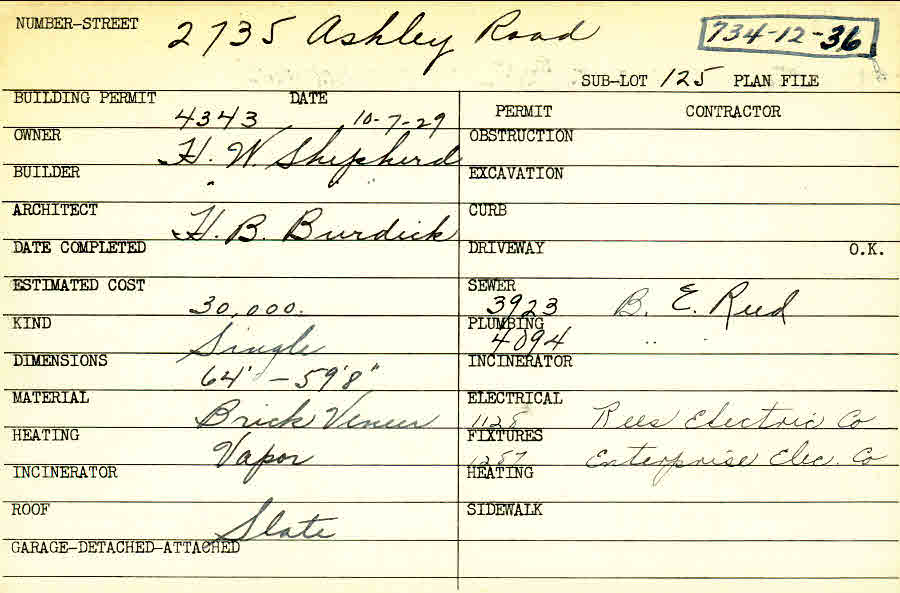 NUMBER-STREET 2735 Ashley Road 734-12-36
SUB-LOT 125 PLAN FILE
BUILDING PERMIT 4343 DATE 10-7-29
PERMIT CONTRACTOR
OWNER H. W. Shepherd
OBSTRUCTION
BUILDER " "
EXCAVATION
ARCHITECT H. B. Burdick
CURB
DATE COMPLETED
DRIVEWAY O.K.
ESTIMATED COST 30,000.
SEWER 3923 B. E. Reed
KIND Single
PLUMBING 4094 " "
DIMENSIONS 64' - 59'8"
INCINERATOR
MATERIAL Brick Veneer
ELECTRICAL 1128 Rees Electric Co
HEATING Vapor
FIXTURES 1287 Enterprise Elec. Co
INCINERATOR
HEATING
ROOF Slate
SIDEWALK
GARAGE-DETACHED-ATTACHED